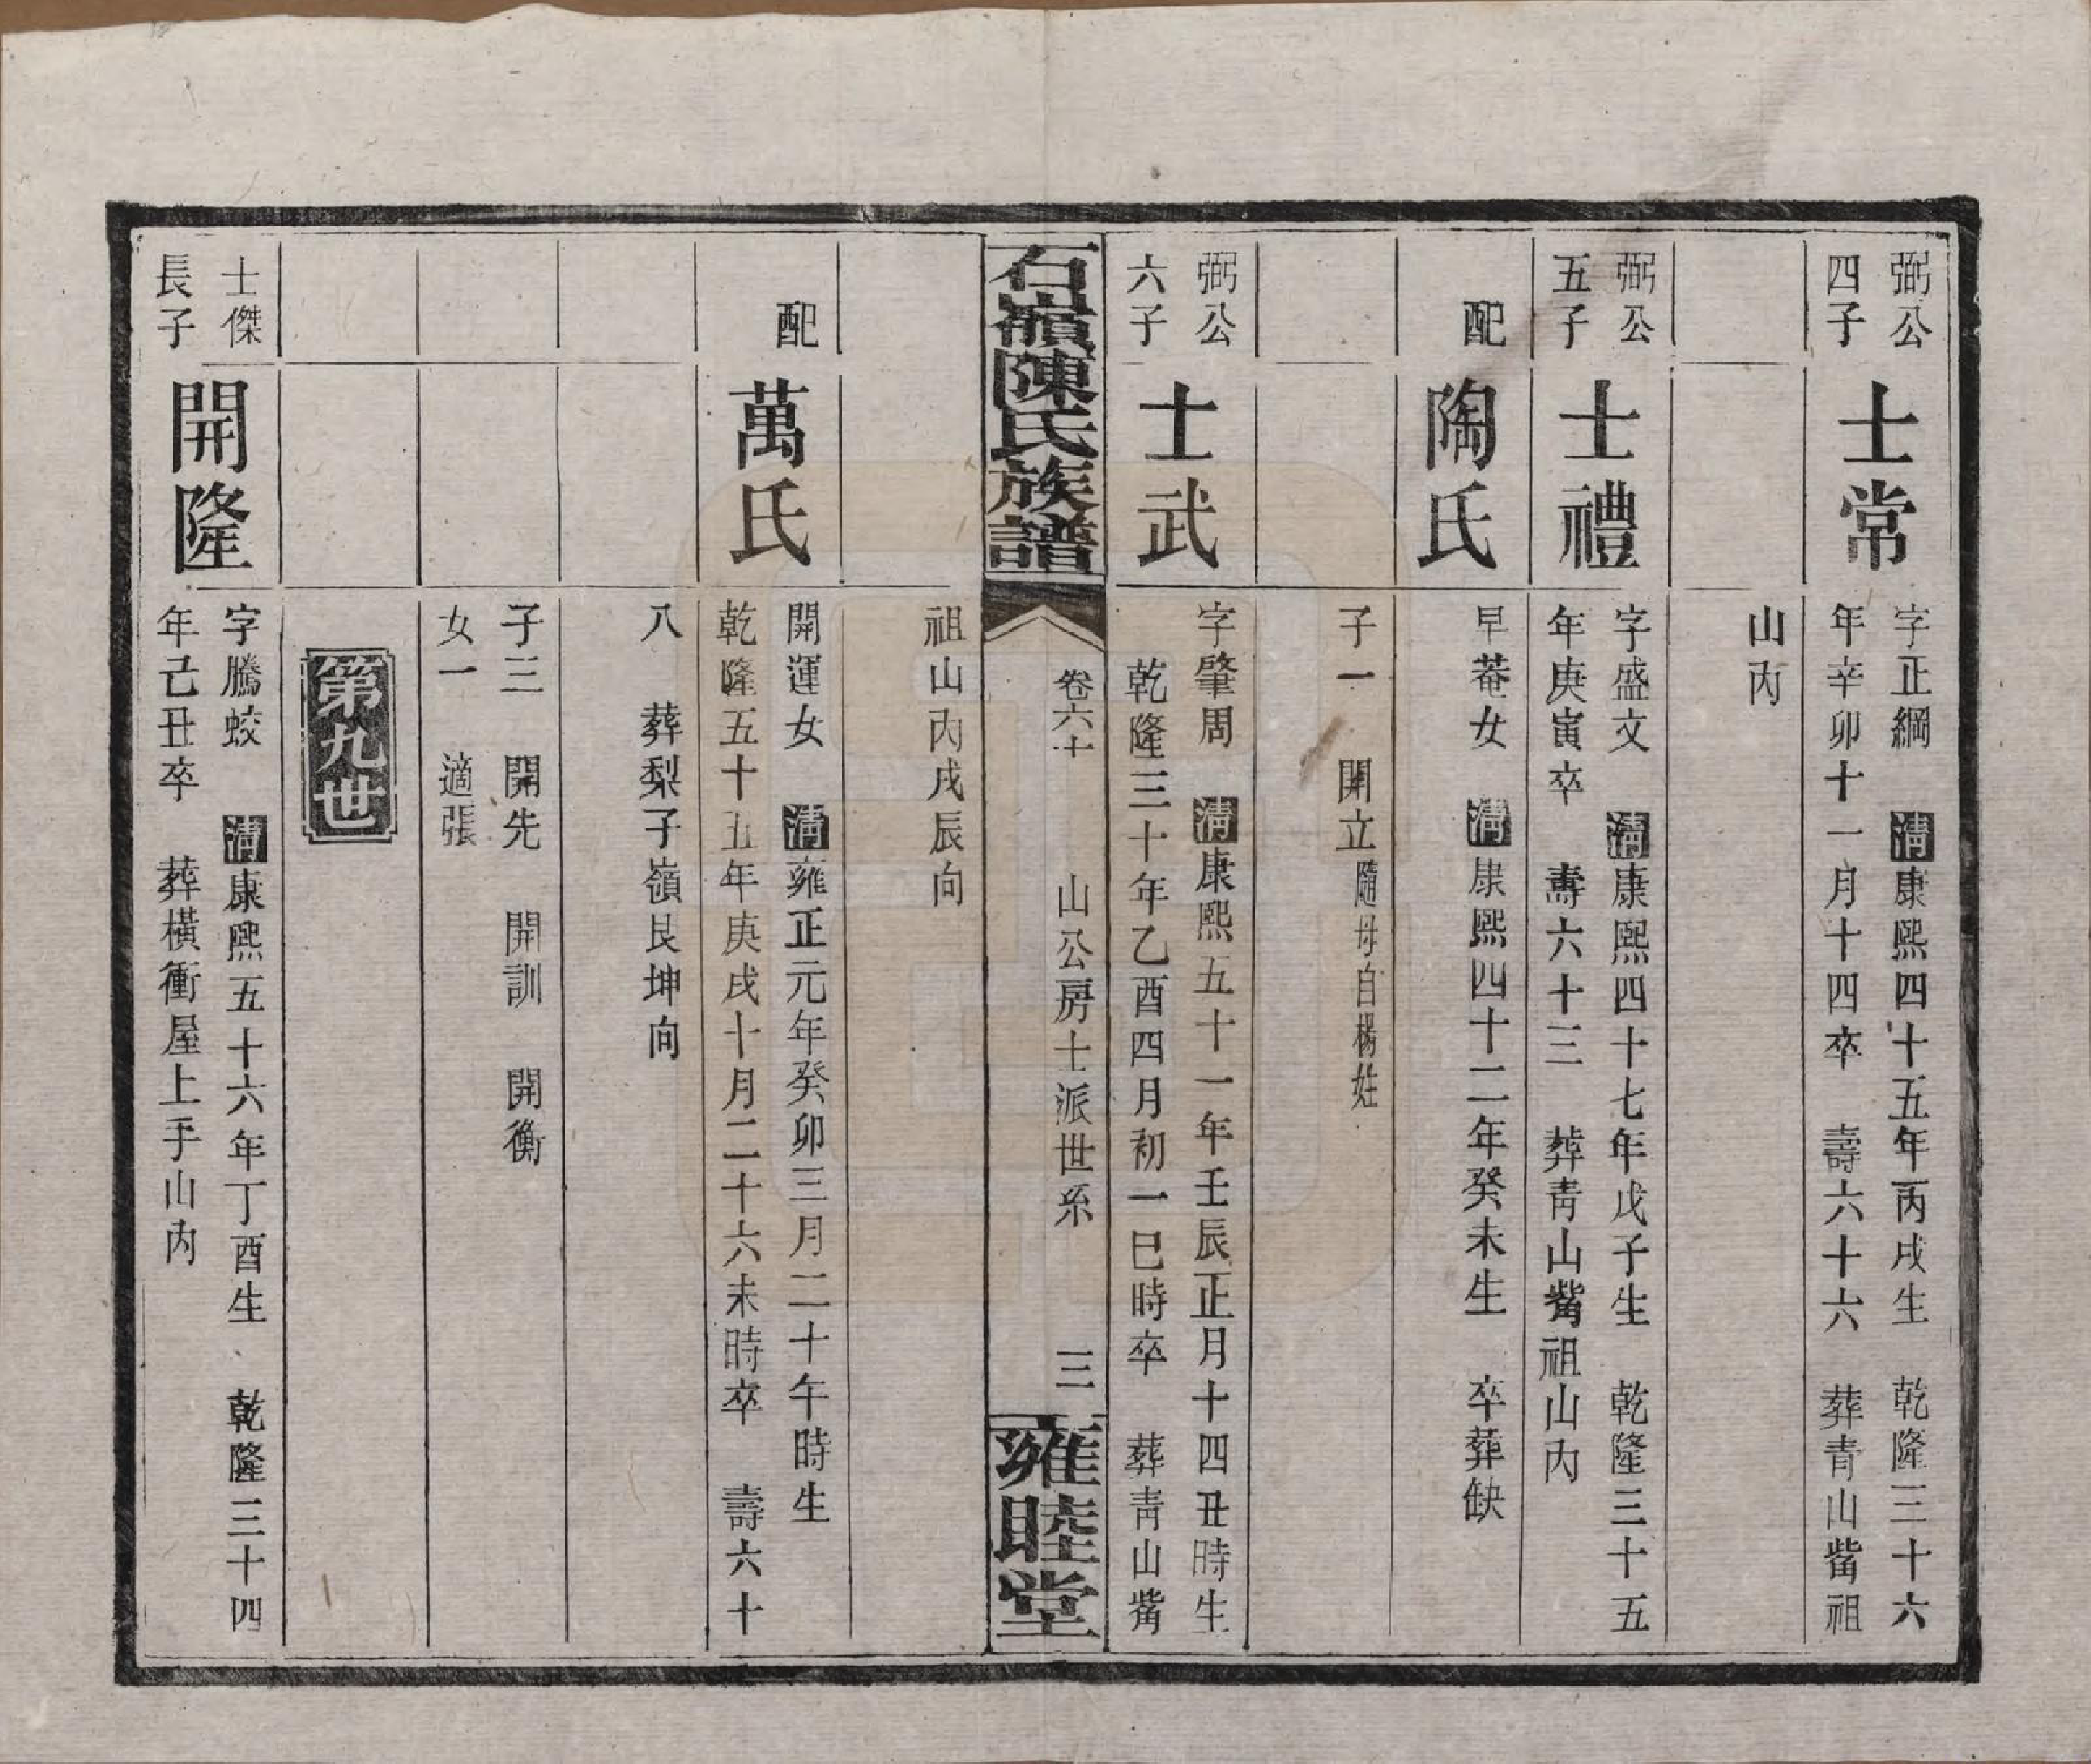 弼公
四子
士常
字正綱 清康熙四十五年丙戌生 乾隆三十六
年辛卯十一月十四卒 壽六十六 葬青山嘴祖
山內
弼公
五子
士禮
字盛文 清康熙四十七年戊子生 乾隆三十五
年庚寅卒 壽六十三 葬青山嘴祖山內
配
陶氏
早菴女 清康熙四十二年癸未生 卒葬缺
子一 開立隨母自楊姓
弼公
六子
士武
字肇周 清康熙五十一年壬辰正月十四丑時生
乾隆三十年乙酉四月初一巳時卒 葬青山嘴
石嶺陳氏族譜
卷六十 山公房士派世系 三
雍睦堂
祖山內戌辰向
配
萬氏
開運女 清雍正元年癸卯三月二十午時生
乾隆五十五年庚戌十月二十六未時卒 壽六十
八 葬梨子嶺艮坤向
子三 開先 開訓 開衡
女一 適張
第九世
士傑
長子
開隆
字騰蛟 清康熙五十六年丁酉生 乾隆三十四
年己丑卒 葬橫衝屋上手山內